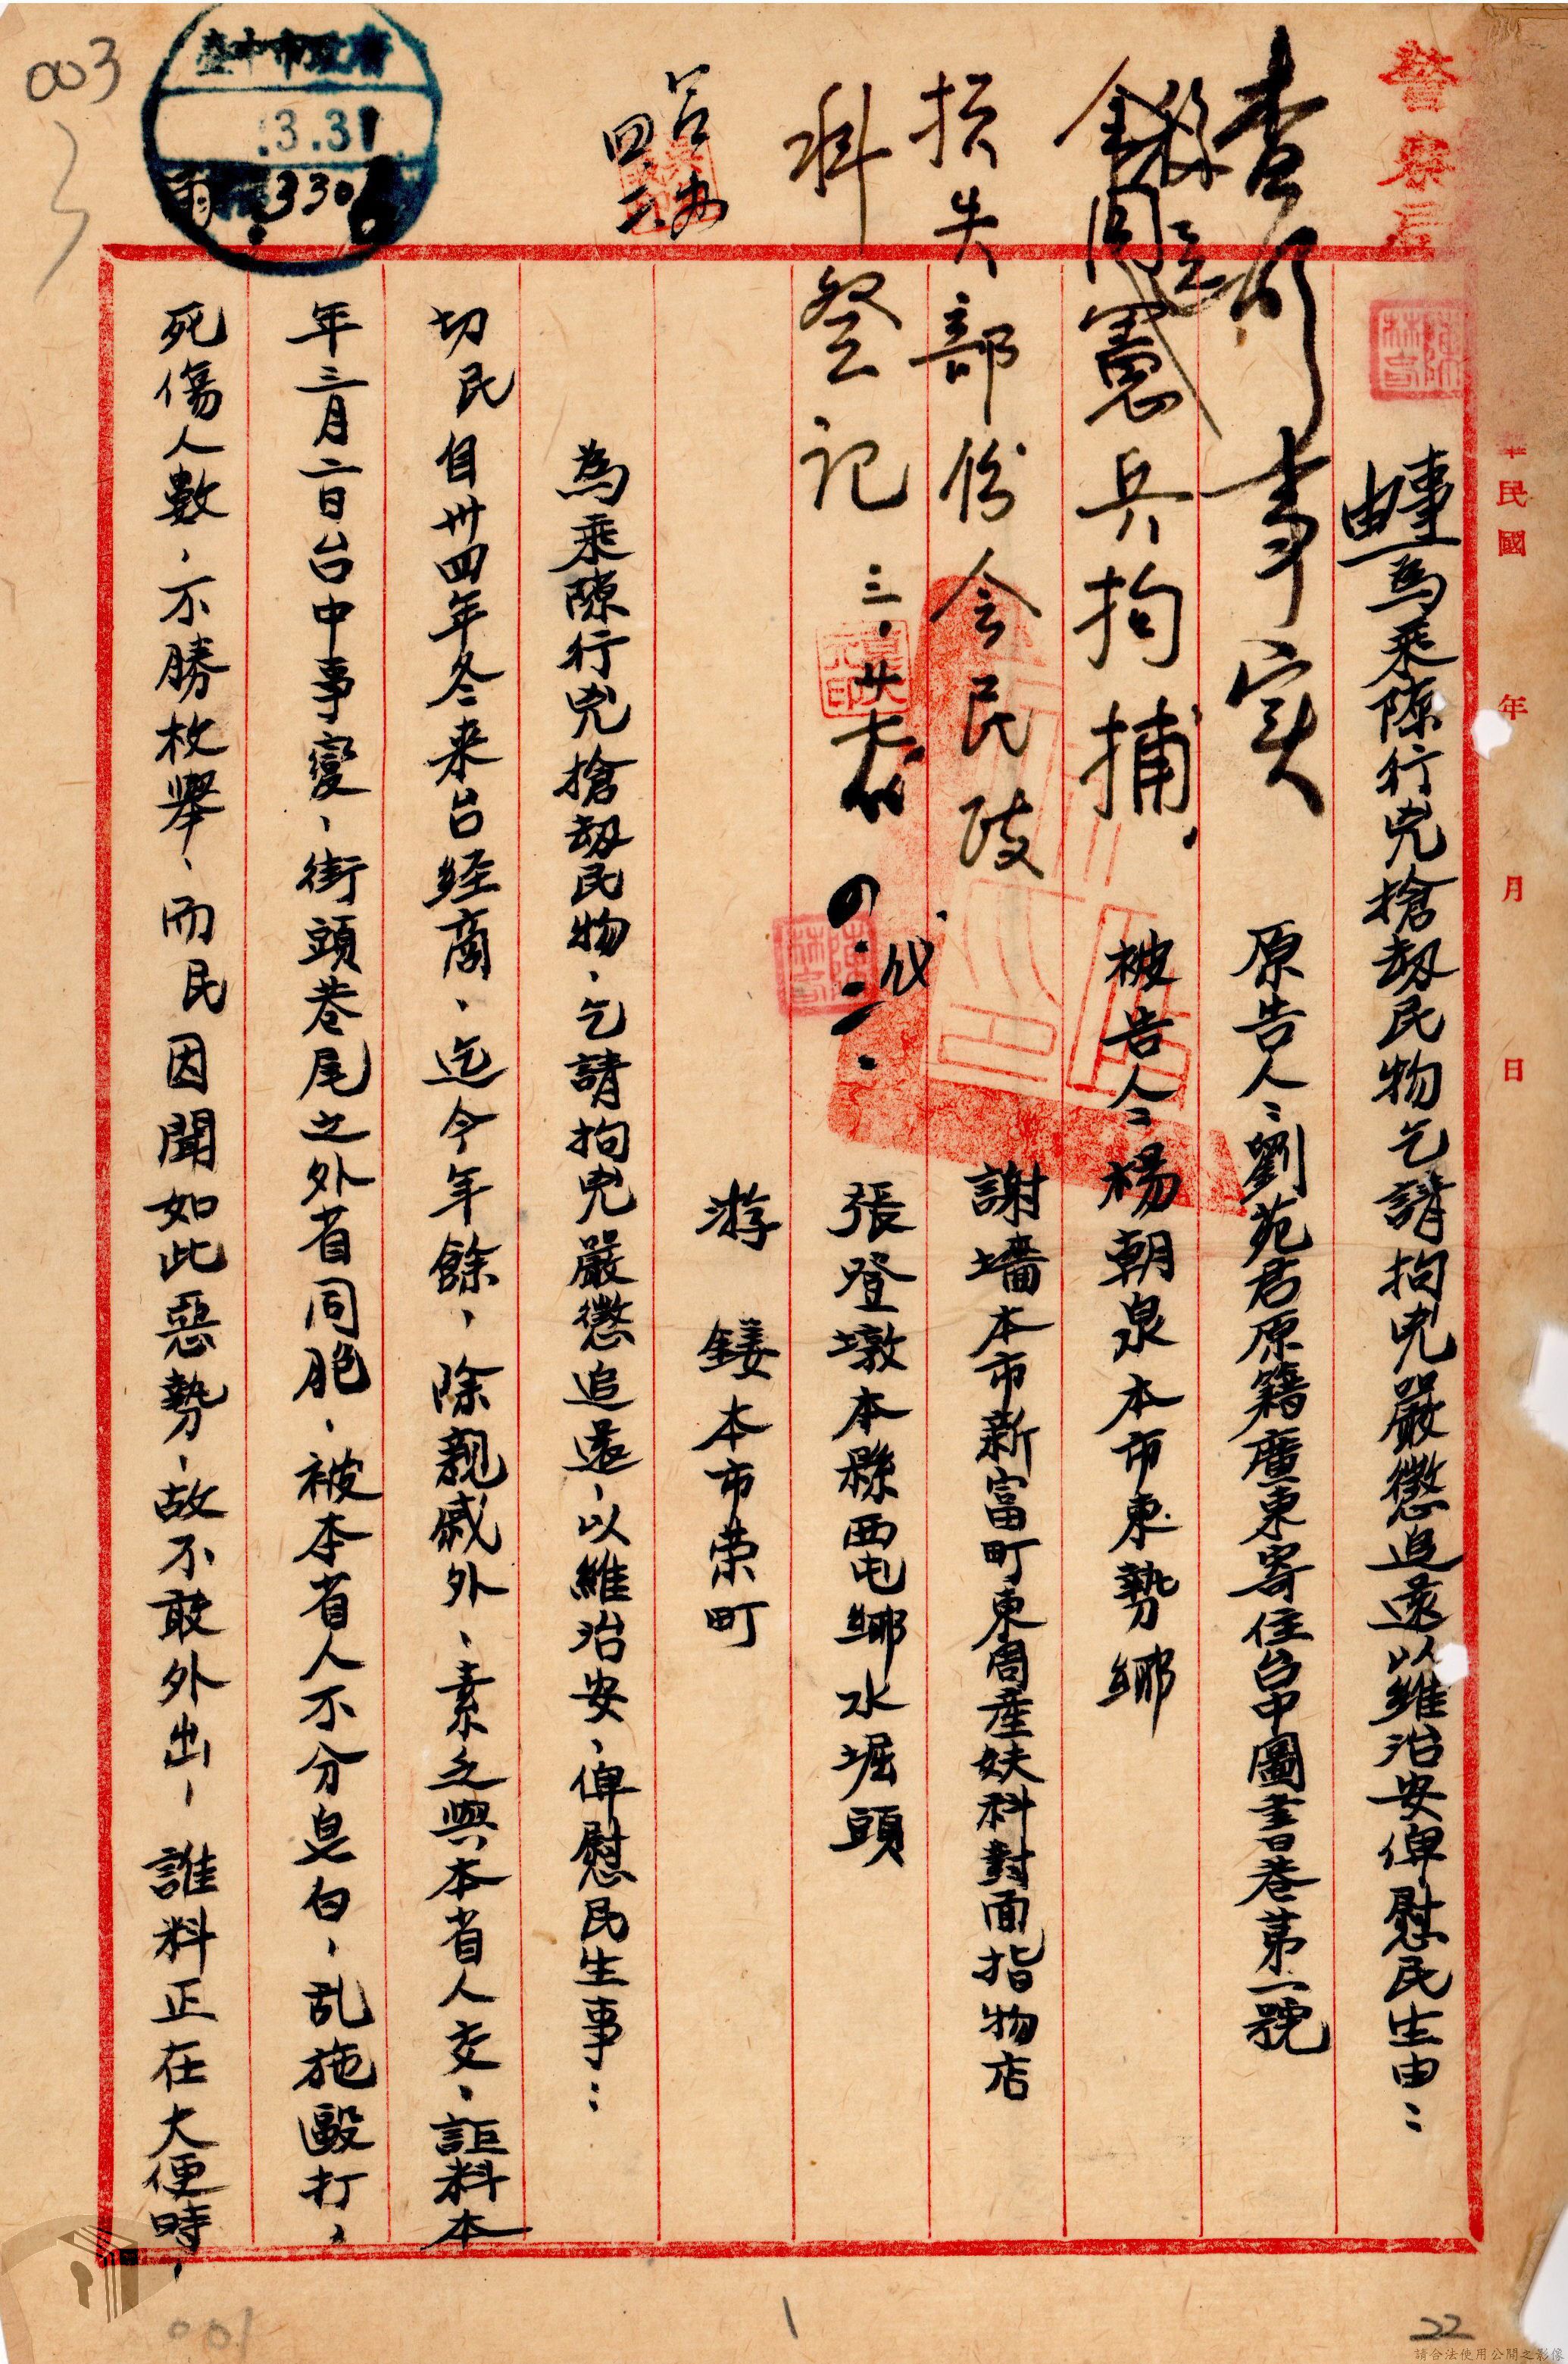 警察局
華民國 年 月 日
事由 為乘隙行兇搶劫民物乞請拘兇嚴懲追還以維治安俾慰民生由：
原告人：劉苑君原籍廣東寄住台中圖書巷第一號
被告人：楊朝泉本市東勢鄉
謝墻本市新富町東周產婦科對面指物店
張登墩本縣西屯鄉水堀頭
游 鏤本市荣町
查明事实
会同憲兵拘捕、
損失部份会民政
科登記 三、廿
四.二.
臺中市政府
3.31
330
為乘隙行兇搶劫民物、乞請拘兇嚴懲追還、以維治安、俾慰民生事：
切民自卅四年冬来台経商、迄今年餘、除親戚外、素之與本省人交、詎料本
年三月二日台中事變、街頭巷尾之外省同胞、被本省人不分皂白、乱施毆打、
死傷人數、不勝枚舉、而民因聞如此惡勢、故不敢外出、誰料正在大便時、
003
001
1
22
請合法使用公開之影像